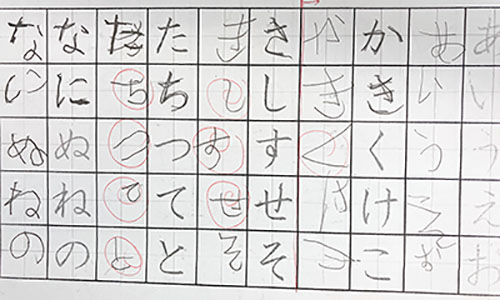 あいうえお
あいう
かきくけこ
かきくけこ
さしすせそ
きしすせそ
たちつてと
たちつてと
なにぬねの
なにぬねの